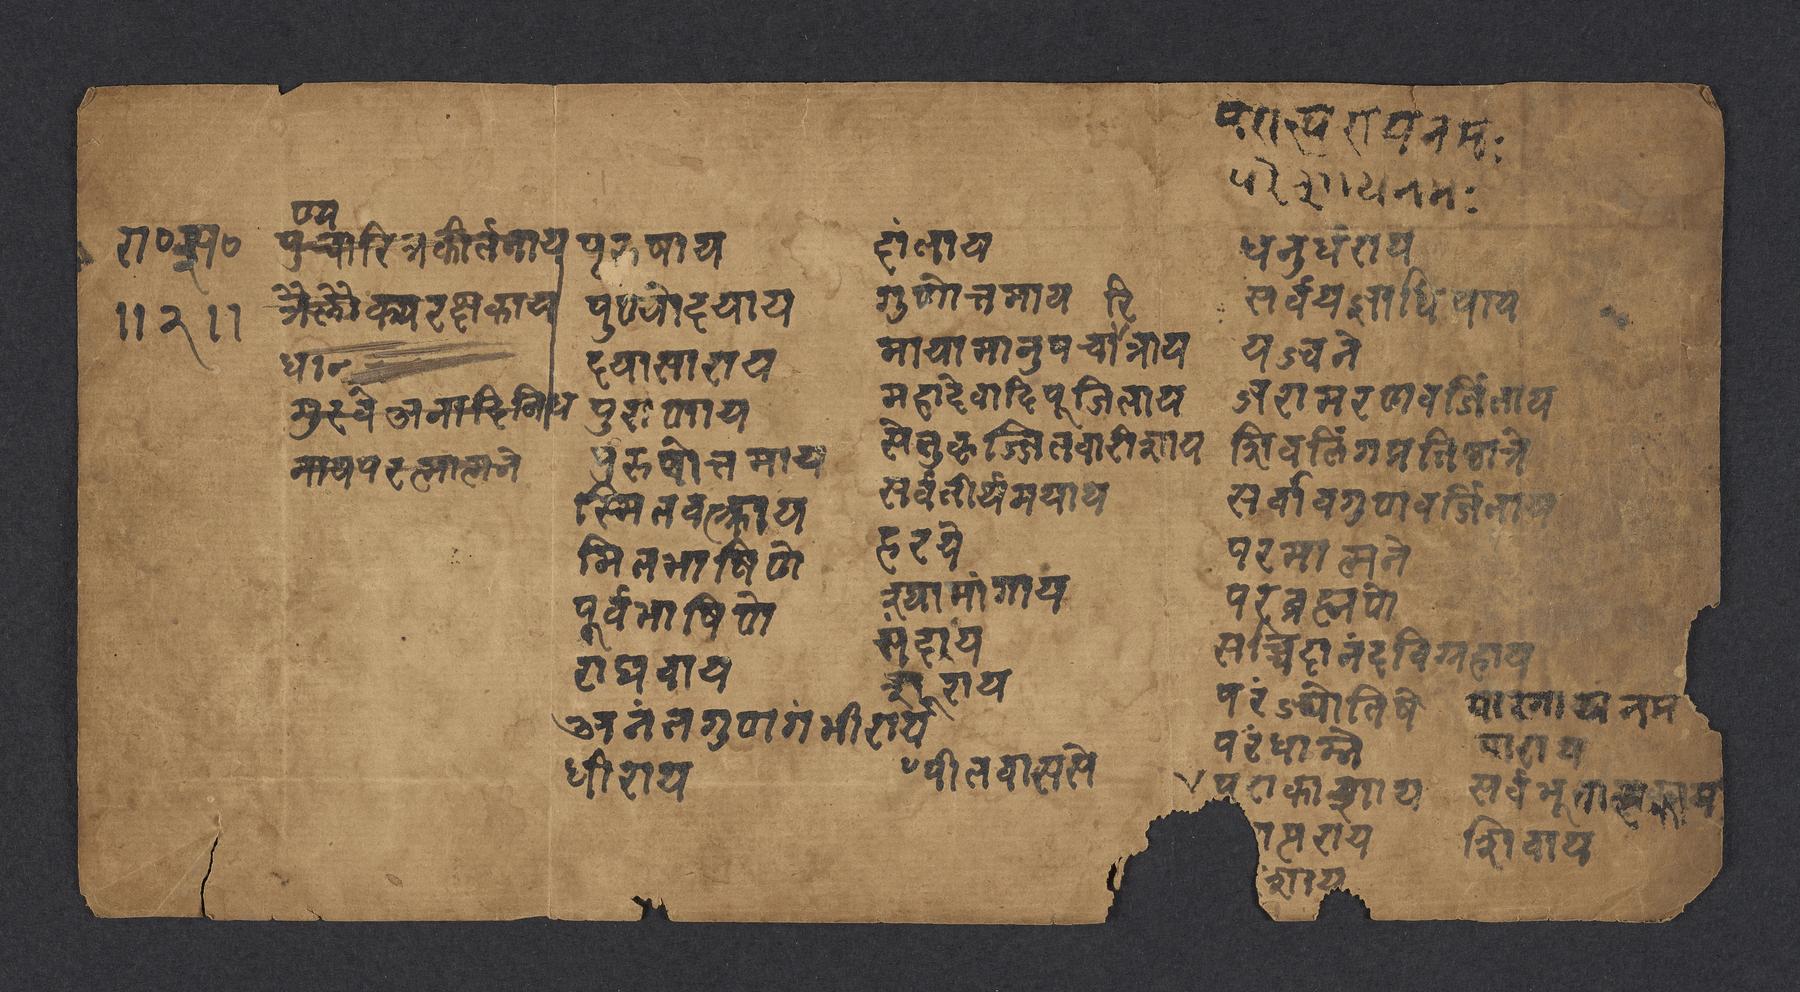 रा०स०
॥२॥
ण्य
पुचारित्रकीर्तनाय
त्रैलोक्यरक्षकाय
धान
गुरवे अनादिनिध
नाय परत्मात्मने
पुरुषाय
पुण्योदयाय
दयासाराय
पुराणाय
पुरुषोत्तमाय
स्मितवक्त्राय
मितभाषिणे
पूर्वभाषिणे
राघवाय
अनंतगुणगंभीराय
धीराय
दांताय
गुणोत्तमाय
रि
मायामानुषचात्राय
महादेवादिपूजिताय
सेतुकृज्जितवारीशाय
सर्वतीर्थमयाय
हरये
श्यामांगाय
सुंदराय
शूराय
पीतवाससे
परात्परायनमः
परेशायनमः
धनुर्धराय
सर्वयज्ञाधिपाय
यज्वने
जरामरणवर्जिताय
शिवलिंगप्रतिष्ठात्रे
सर्वावगुणवर्जिताय
परमात्मने
परब्रह्मणे
सच्चिदानंदविग्रहाय
परंज्योतिषे
परंधाम्ने
पराकाशाय
पारगाय नम
पाराय
शिवाय